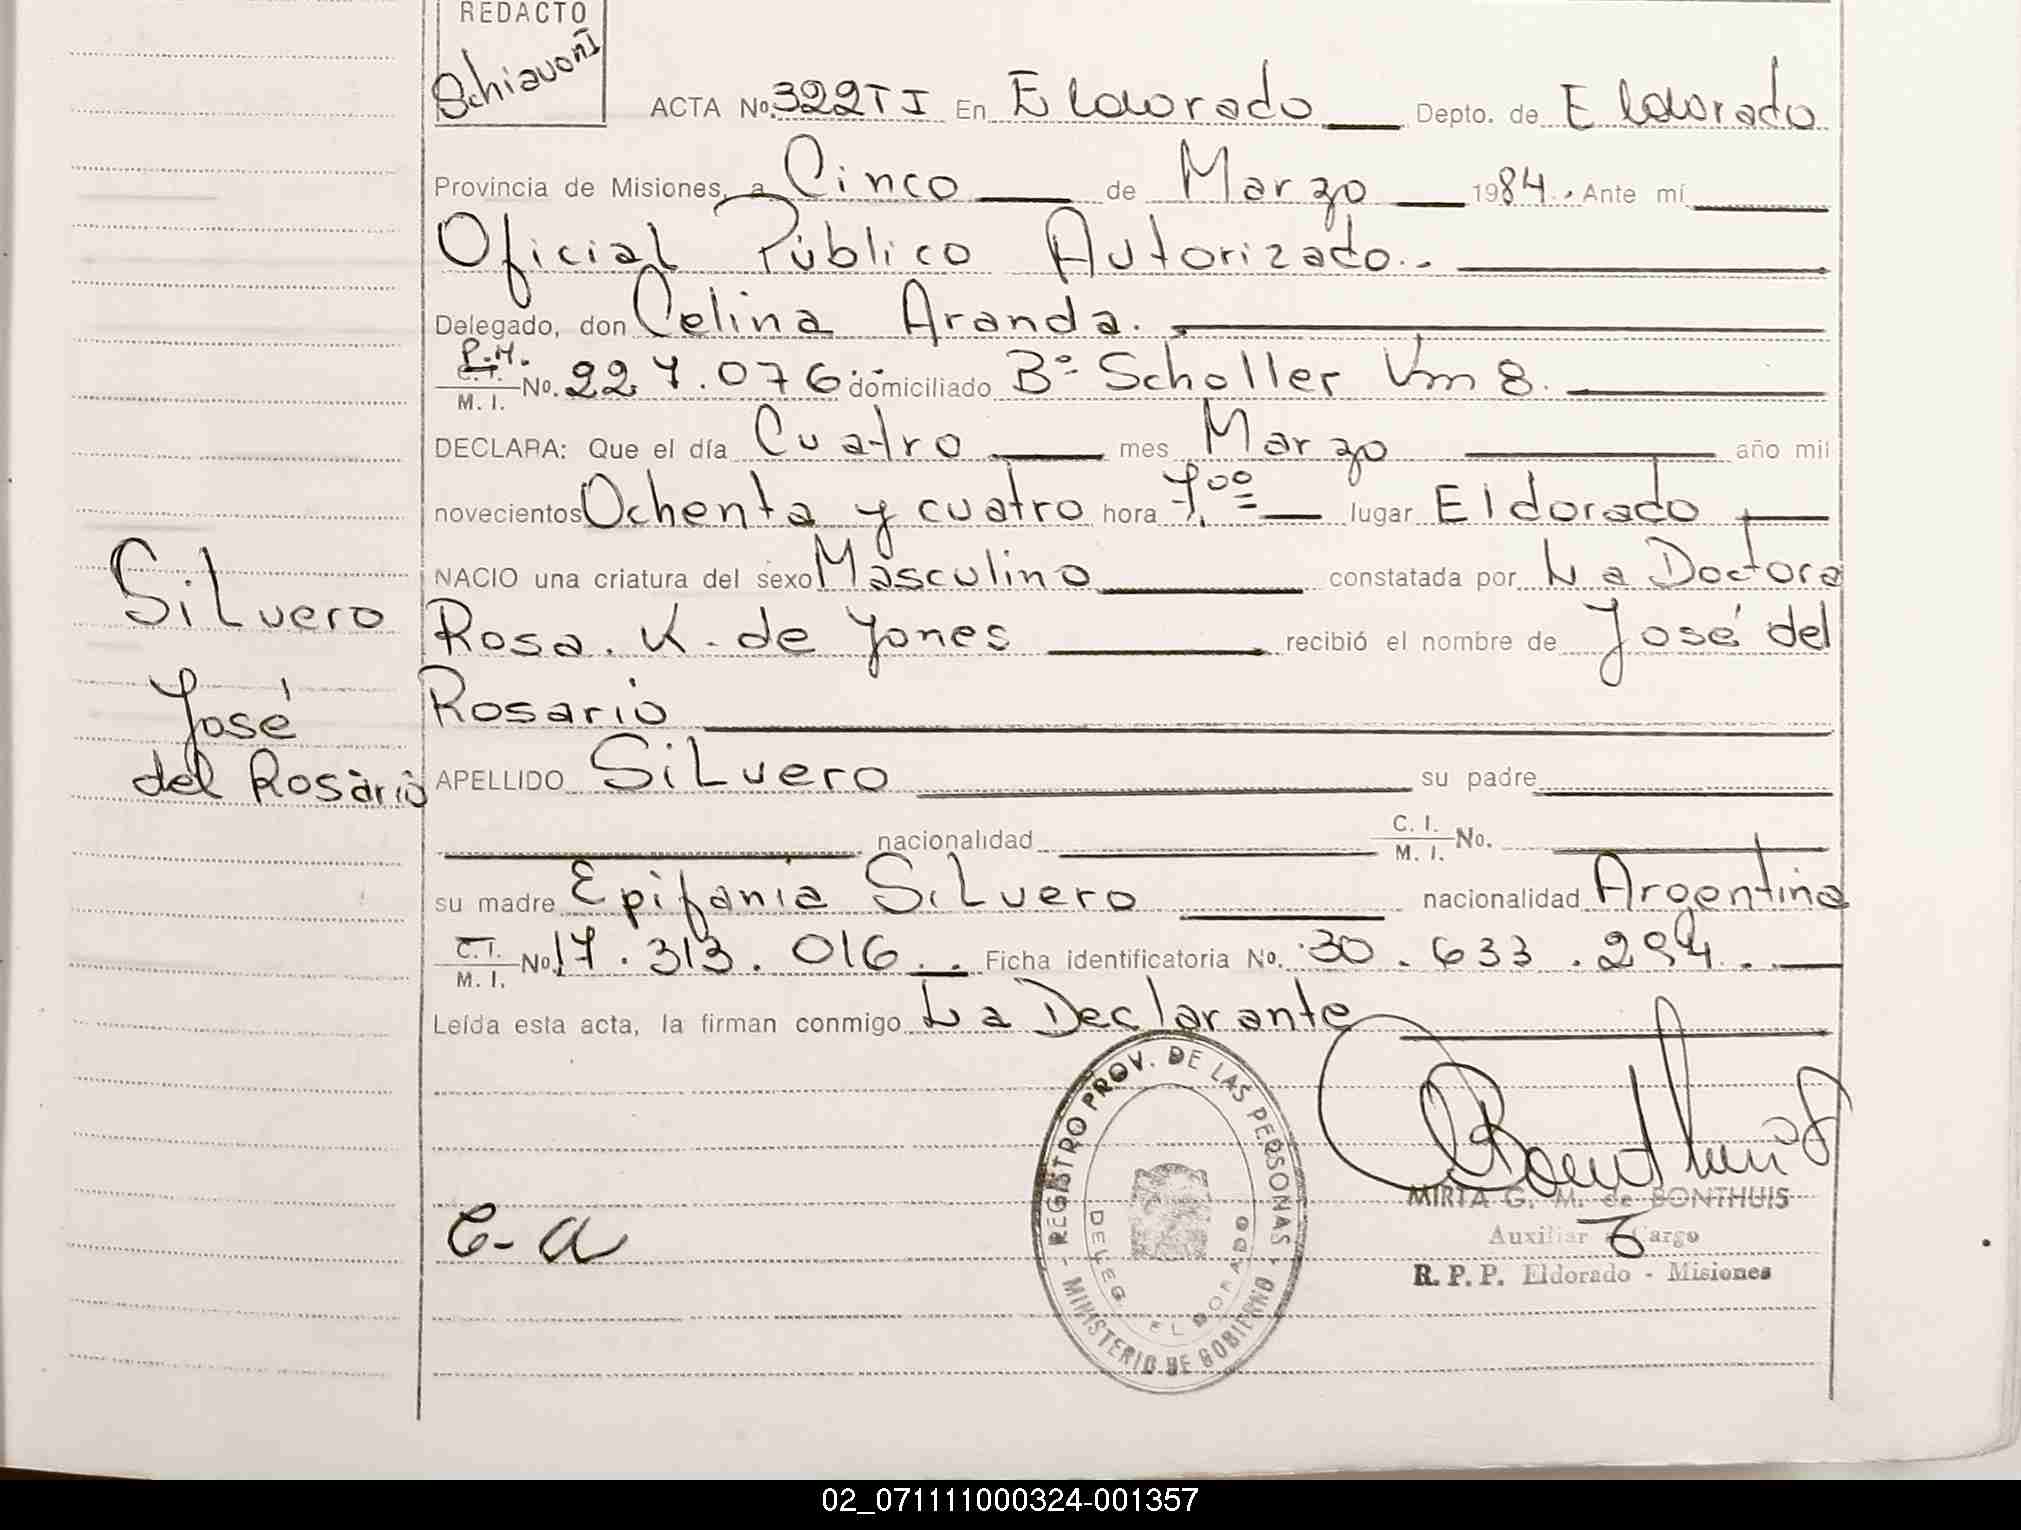 REDACTO
Schiavoni
ACTA No. 322 T I En Eldorado Depto. de Eldorado
Provincia de Misiones, a Cinco de Marzo 1984. Ante mí
Oficial Público Autorizado.
Delegado, don Celina Aranda.
P.M.
C. I.
M. I. No. 227.076 domiciliado Bº Scholler Km 8.
DECLARA: Que el día Cuatro mes Marzo año mil
novecientos Ochenta y cuatro hora 7,00 lugar Eldorado
NACIO una criatura del sexo Masculino constatada por La Doctora
Rosa. K. de Jones recibió el nombre de José del
Rosario
APELLIDO SiLvero su padre
nacionalidad C. I. M. I. No.
su madre Epifania SiLvero nacionalidad Argentina
C. I. M. I. No. 17.313.016. Ficha identificatoria No. 30.633.294.
Leída esta acta, la firman conmigo La Declarante
SiLvero
José
del Rosario
C-A
REGISTRO PROV. DE LAS PERSONAS
MINISTERIO DE GOBIERNO
DELEG. ELDORADO
MIRTA G. M. de BONTHUIS
Auxiliar Cargo
R. P. P. Eldorado - Misiones
02_071111000324-001357